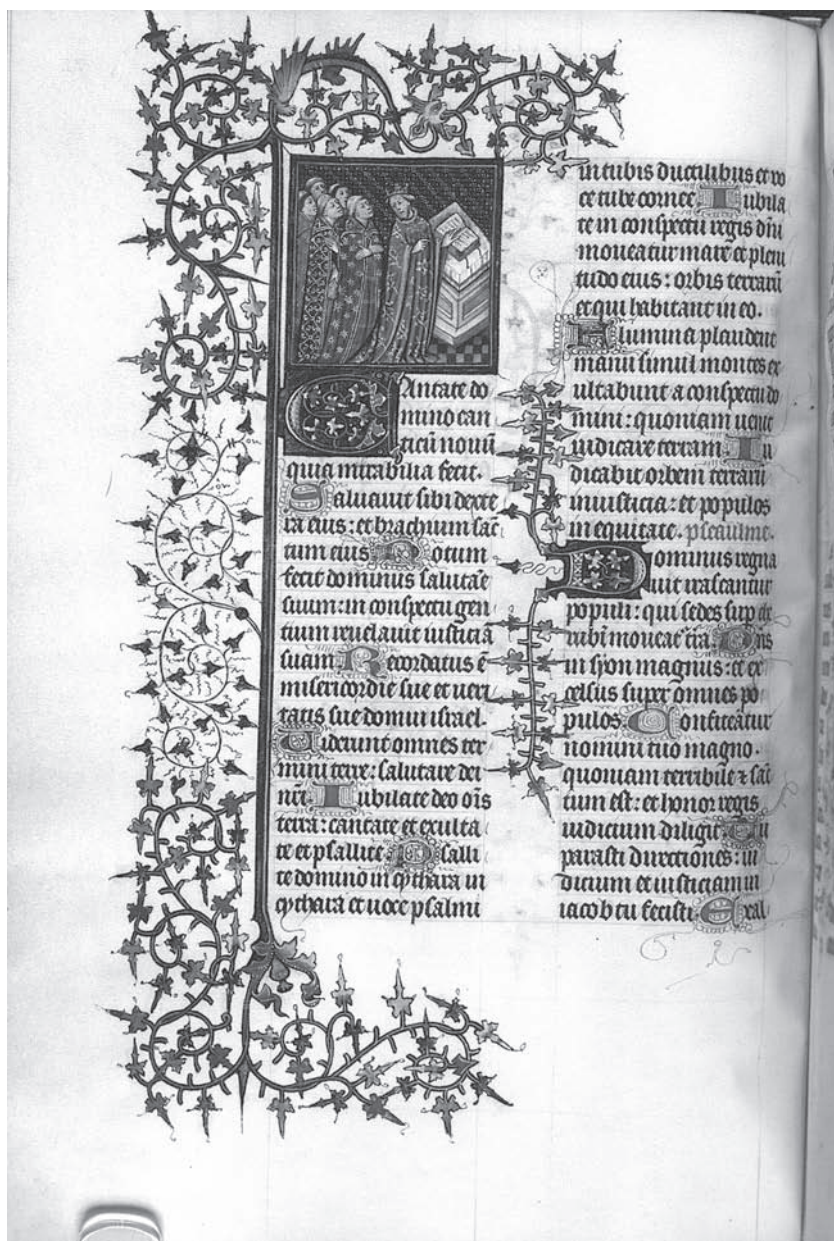 Cantate do
mino can
ticū nouū
quia mirabilia fecit.
Saluauit sibi dexte
ra eius: et brachium sāc
tum eius Notum
fecit dominus salutare
suum: in conspectu gen
tium reuelauit iusticiā
suam Recordatus ē
misericordie sue et ueri
tatis sue domui israel.
Uiderunt omnes ter
mini terre: salutare dei
nr̄i. Iubilate deo oīs
terra: cantate et exulta
te et psallite Psalli
te domino in cythara in
cythara et uoce psalmi
in tubis ductilibus et uo
ce tube cornee Iubila
te in conspectu regis dn̄i
moueatur mare et pleni
tudo eius: orbis terrarū
et qui habitant in eo.
Flumina plaudent
manu simul montes ex
ultabunt a conspectu do
mini: quoniam uenit
iudicare terram Iu
dicabit orbem terrarū
in iusticia: et populos
in equitate. pseaulme.
Dominus regna
uit irascantur
populi: qui sedes sup che
rubī moueat᷑ tr̄a. Dn̄s
in syon magnus: et ex
celsus super omnes po
pulos Confiteātur
nomini tuo magno.
quoniam terribile ⁊ sāc
tum est: et honor regis
iudicium diligit Tu
parasti directiones: iu
dicium et iusticiam in
iacob tu fecisti Exal